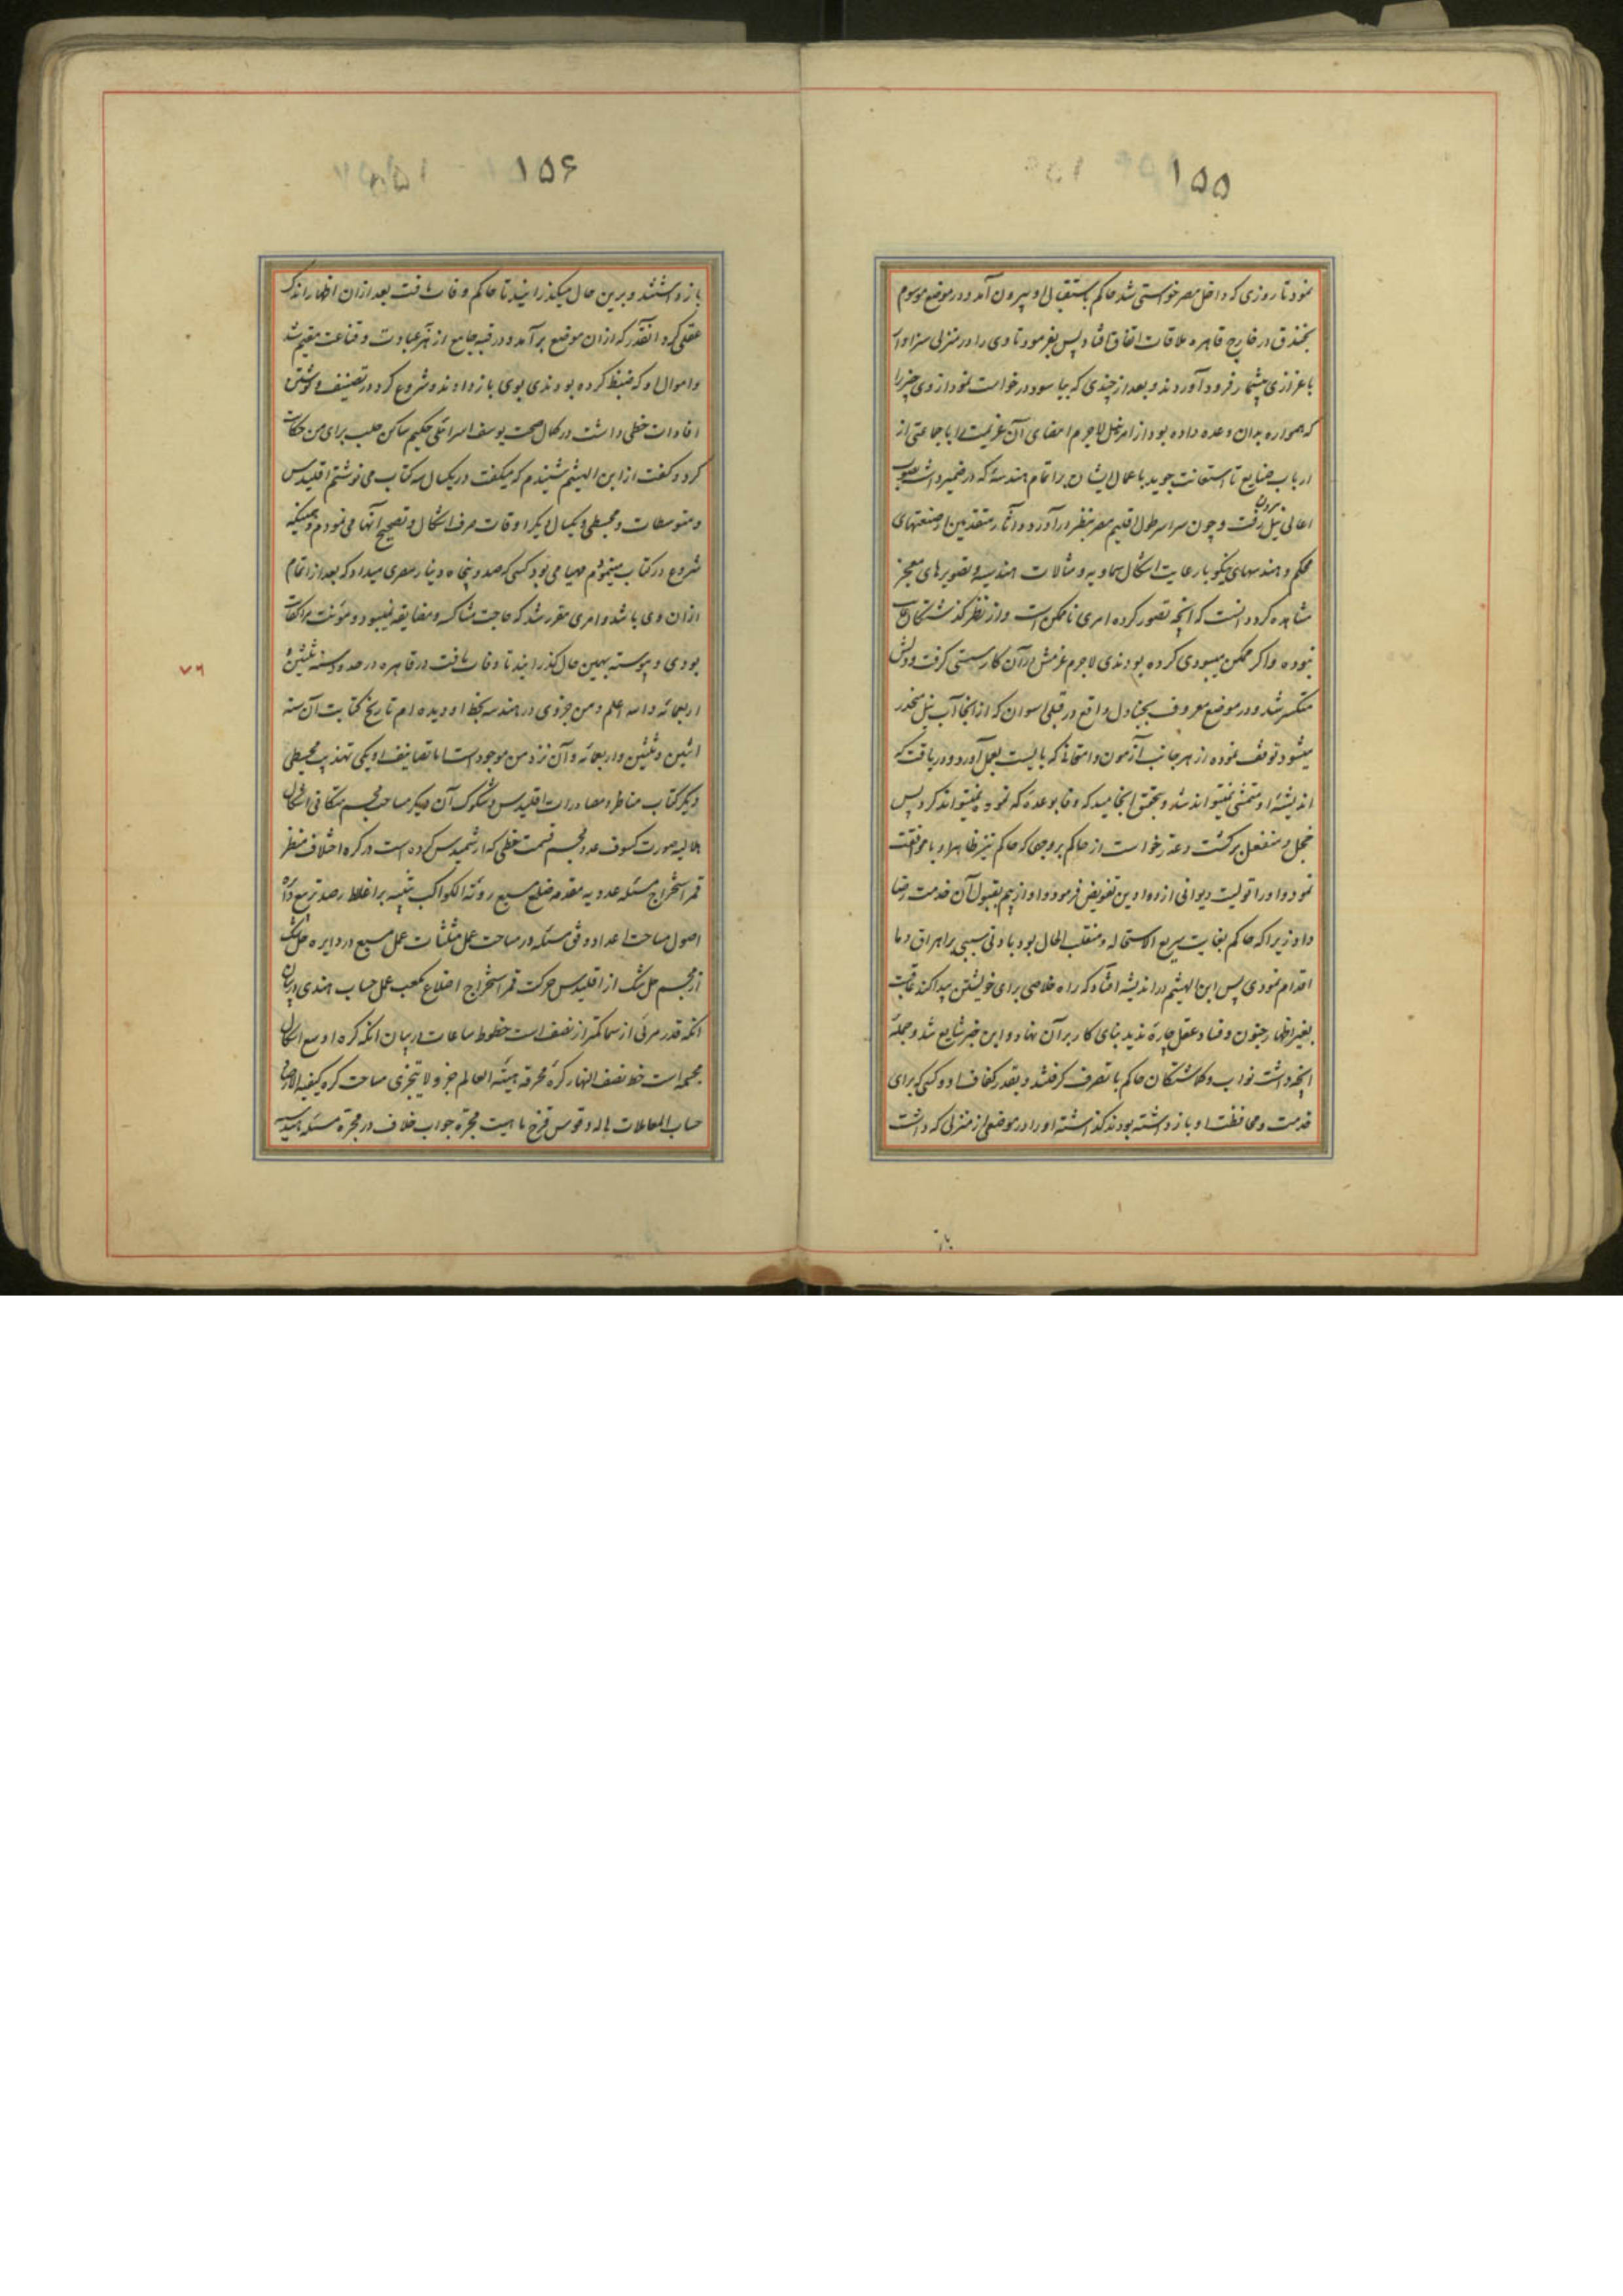 ۱۵۵
نمود تا روزی که داخل مصر خواستی شد حاکم باستقبال او بیرون آمد و در موضع موسوم
بخندق در خارج قاهره ملاقات اتفاق افتاد پس بفرمود تا وی را در منزلی سزاوار
باعزازی بیشمار فرود آوردند و بعد از چندی که بیاسود درخواست نمود از وی چیز را
که همواره بدان وعده داده بود از امر نیل لاجرم امضای آن عزیمت را با جماعتی از
ارباب صنایع تا استعانت جوید باعمال ایشان بر اتمام هندسهٔ که در ضمیر داشت بصوب
اعالی نیل بیرون رفت و چون سراسر طول اقلیم مصر بنظر درآورد و آثار متقدمین از صنعتهای
محکم و هندسهای نیکو با رعایت اشکال سماویه و مثالات هندسیه و تصویرهای معجز
مشاهده کرد دانست که آنچه تصور کرده امری ناممکن است و از نظر گذشتگان غایب
نبوده و اگر ممکن میبودی کرده بودندی لاجرم عزمش در آن کار سستی گرفت و دلش
منکسر شد و در موضع معروف بجنادل واقع در قبلی اسوان که از آنجا آب نیل منحدر
میشود توقف نموده از هر جانب آزمون و امتحانها که بایست بعمل آورد و دریافت که
اندیشهٔ او متمشی نمیتواند شد و بتحقیق انجامید که وفا بوعدهٔ که نموده نمیتواند کرد پس
خجل و منفعل برگشت و عذر خواست از حاکم بر وجهی که حاکم نیز ظاهرا و با موافقت
نمود و او را تولیت دیوانی از دواوین تفویض فرمود و او از بیم بقبول آن خدمت رضا
داد زیرا که حاکم بغایت سریع الاستحاله و منقلب الحال بود با دنی سببی بر اهراق دما
اقدام نمودی پس ابن الهیثم در اندیشه افتاد که راه خلاصی برای خویشتن پیدا کند عاقبت
بغیر اظهار جنون و فساد عقل چاره ندید بنای کار بر آن نهاد و این خبر شایع شد و جملهٔ
آنچه داشت نواب و گماشتگان حاکم بتصرف گرفتند و بقدر کفاف او و کسی که برای
خدمت و محافظت او باز داشته بودند گذاشته او را در موضعی از منزلی که داشت
باز
۱۵۶
باز داشتند و برین حال میگذرانید تا حاکم وفات یافت بعد از آن اظهار اندک
عقلی کرد آنقدر که از آن موضع برآمد و در قبه جامع از هر عبادت و قناعت مقیم شد
و اموال او که ضبط کرده بودندی بوی باز دادند و شروع کرد در تصنیف و نوشتن
افادات خطی داشت در کمال صحت یوسف اسرائلی حکیم ساکن حلب برای من حکایت
کرد و گفت از ابن الهیثم شنیدم که میگفت در یکسال سه کتاب می نوشتم اقلیدس
و متوسطات و مجسطی و یکسال دیگر اوقات صرف اشکال و تصحیح آنها می نمودم و همینکه
شروع در کتاب مینمودم مهیا می بود کسی که صد و پنجاه دینار مصری میداد که بعد از اتمام
از آن وی باشد و امری مقرر شد که حاجت مشاکسه و مضایقه نمیبود و مؤنت مرا کفایت
بودی و پیوسته بهمین حال گذرانید تا وفات یافت در قاهره در حدود سنه ثلثین و
۷۶
اربعمائه والله اعلم و من جزوی در هندسه بخط او دیده ام تاریخ کتابت آن سنه
اثنین و ثلثین و اربعمائه و آن نزد من موجود است اما تصانیف او یکی تهذیب مجسطی
دیگر کتاب مناظر و مصادرات اقلیدس و شکوک آن دیگر مساحت مجسم متکافی اشکال
هلالیه صورت کسوف عدد مجسم قسمت خطی که ارشمیدس کرده است در کره اختلاف منظر
قمر استخراج مسئله عددیه مقدمه ضلع مسبع رویة الکواکب تنبیه بر اغلاط رصد تربیع دائره
اصول مساحت اعداد وفق مسئله در مساحت عمل مثلثات عمل مسبع در دایره حل شک
از مجسم حل شک از اقلیدس حرکت قمر استخراج اضلاع مکعب عمل حساب هندی در بیان
آنکه قدر مرئی از سما کمتر از نصف است خطوط ساعات در بیان آنکه کره اوسع اشکال
مجسمه است خط نصف النهار کرهٔ محرقه هیئة العالم جزو لا یتجزی مساحت کره کیفیه الارصاد
حساب المعاملات هاله و قوس قزح ماهیت مجرة جواب خلاف در مجرة مسئله هندسیه